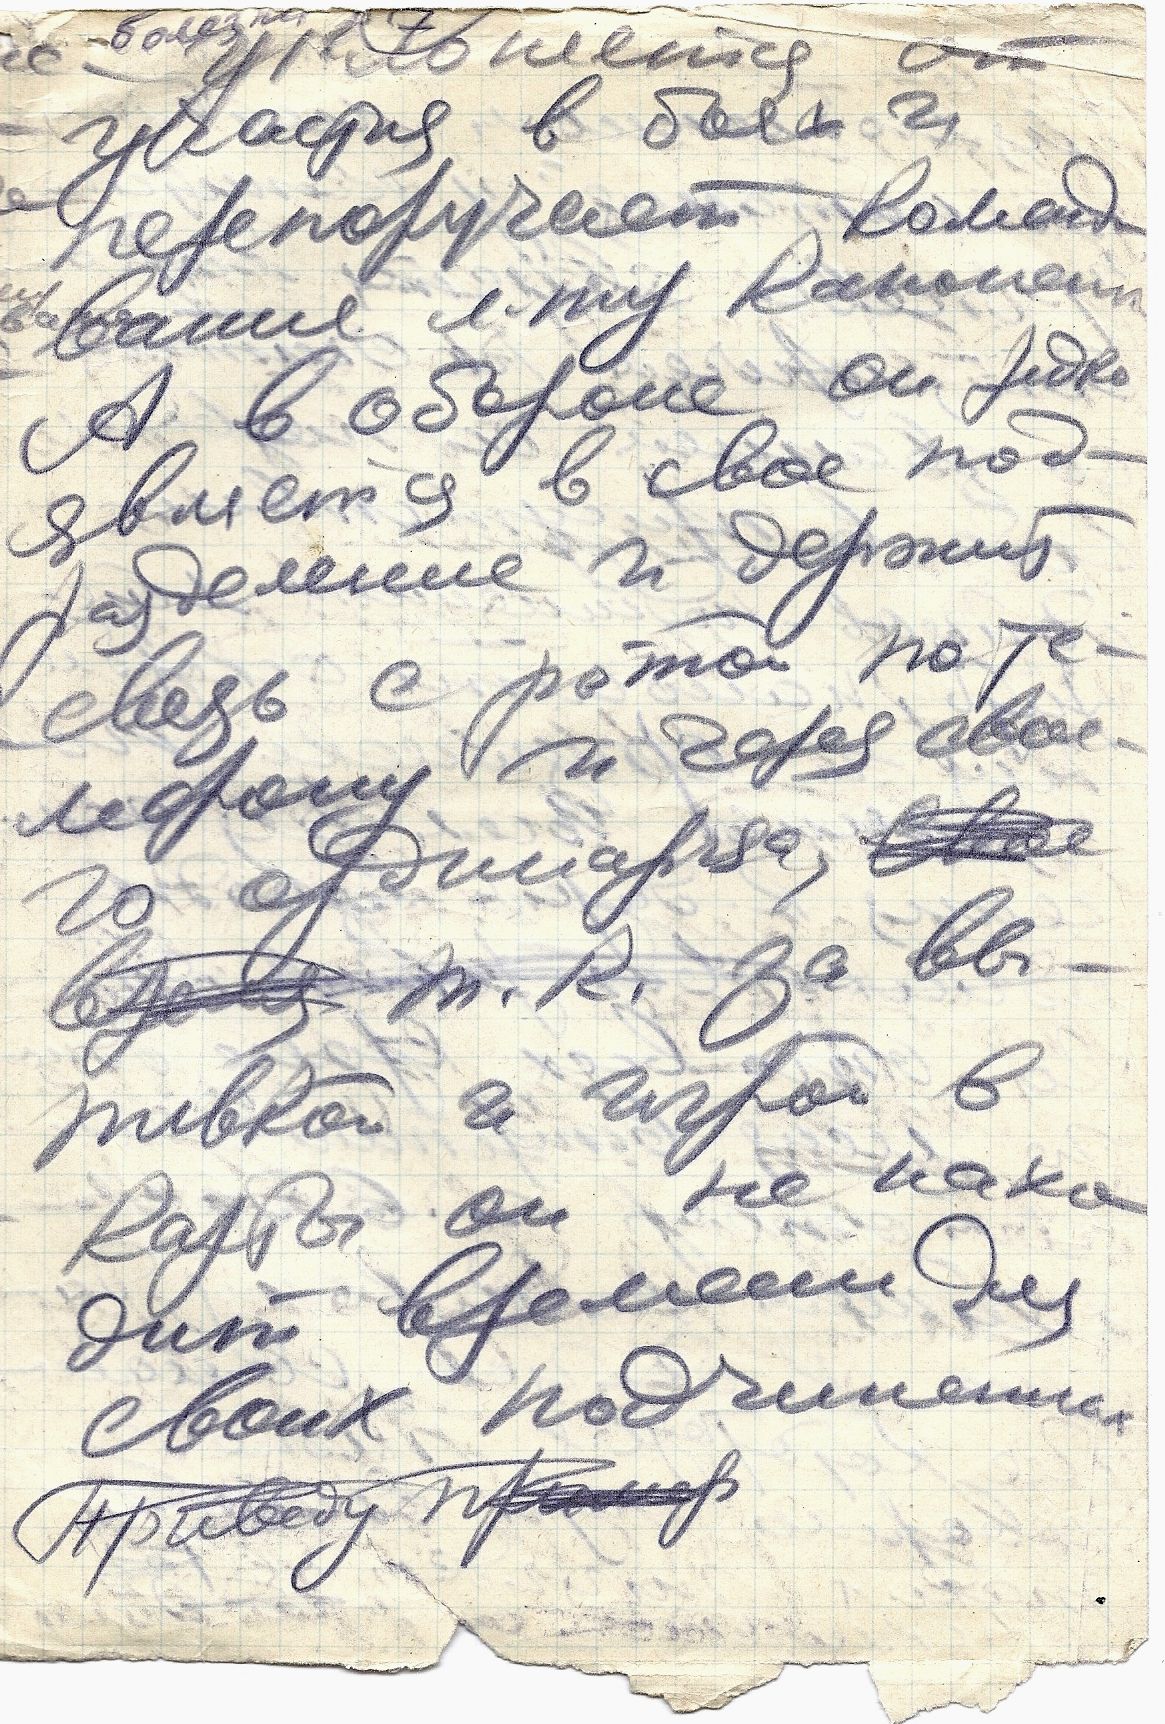 болезни
уклоняется от
участия в боях и
перепоручает командо
вание л-ту
А в обороне он редко
является в свое под-
разделение и держит
связь с ротой по те-
лефону и через свое-
го ординарца,
т.к. за вы-
пивкой и игрой в
карты он не нахо
дит времени для
своих подчиненных
Приведу пример